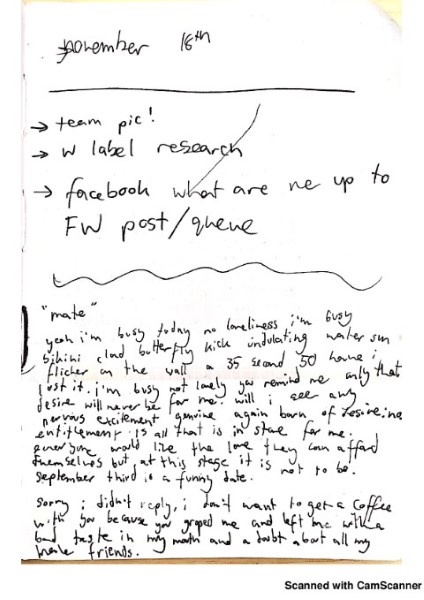 november 18th
→ team pic!
→ W label research
→ facebook what are we up to
FW post/queue
"mate"
yeah i'm busy today no loneliness i'm busy
bikini clad butterfly kick undulating water sun
flicker on the wall a 35 second 50 home i
lost it. i'm busy not lonely you remind me only that
desire will never be for me. will i see any
nervous excitement genuine again born of desire. no
entitlement is all that is in store for me.
everyone would like the love they can afford
themselves but at this stage it is not to be.
september third is a funny date.
sorry i didn't reply, i don't want to get a coffee
with you because you groped me and left me with a
bad taste in my mouth and a doubt about all my
male friends.
Scanned with CamScanner